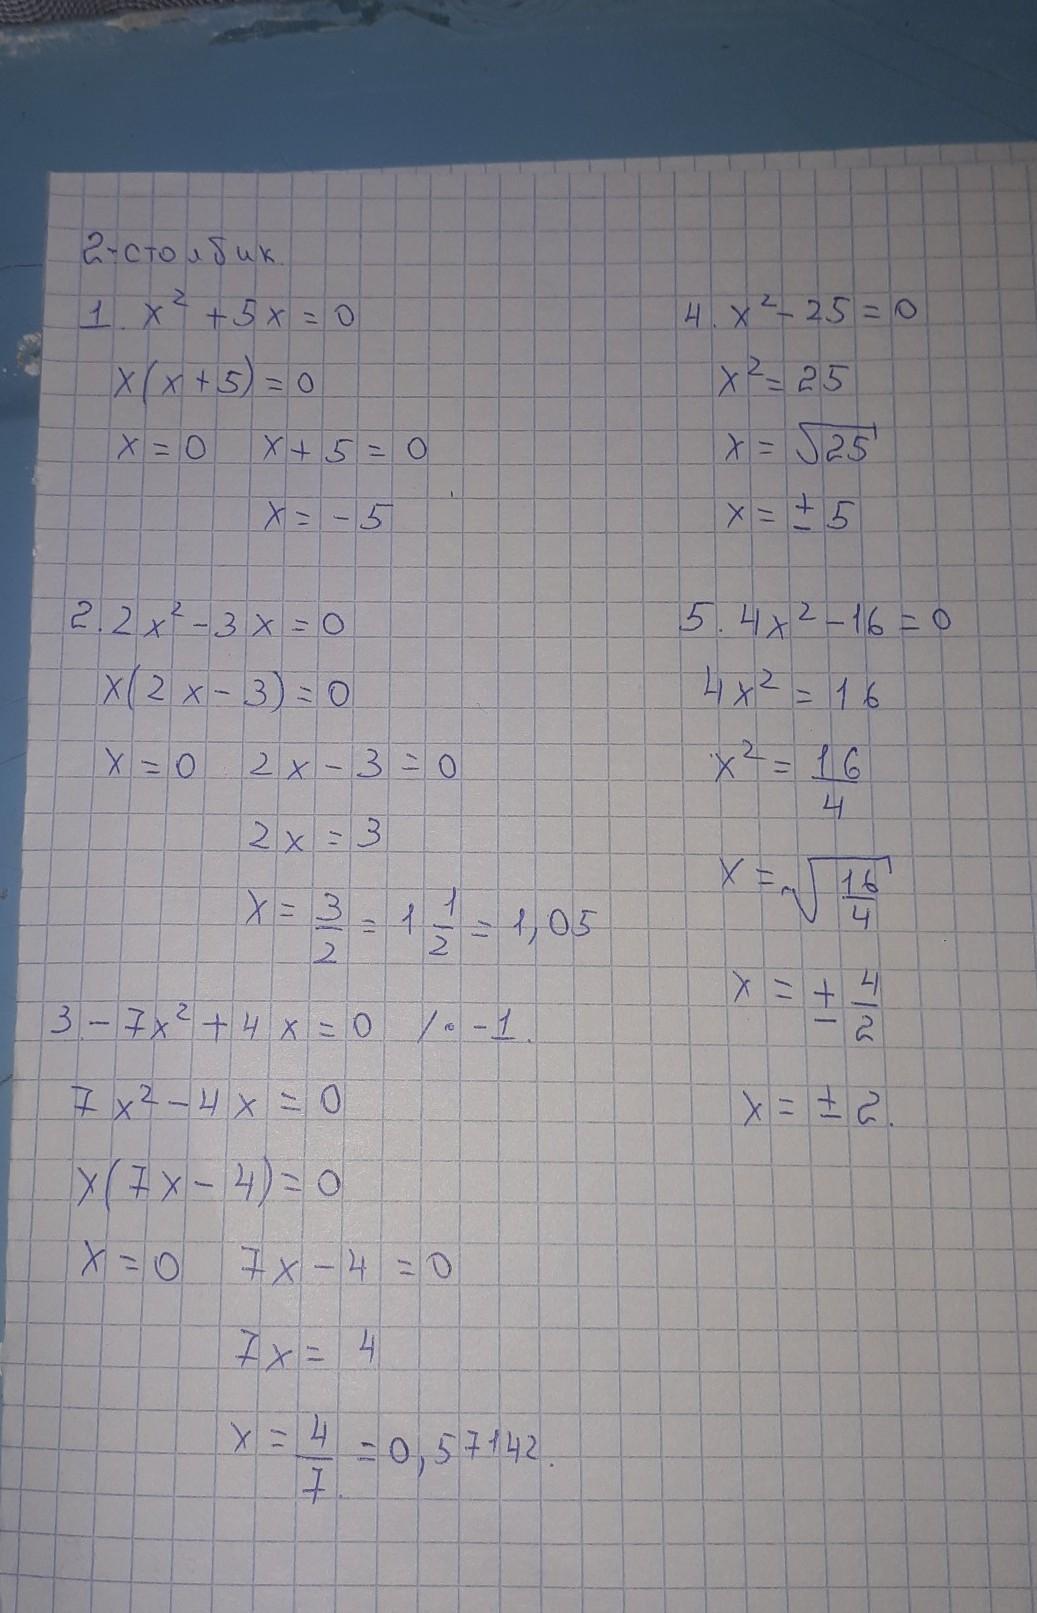 2-столбик.
1. x² + 5x = 0
x(x + 5) = 0
x = 0   x + 5 = 0
x = - 5
2. 2x² - 3x = 0
x(2x - 3) = 0
x = 0   2x - 3 = 0
2x = 3
x = 3/2 = 1 1/2 = 1,05
3. - 7x² + 4x = 0   /• -1.
7x² - 4x = 0
x(7x - 4) = 0
x = 0   7x - 4 = 0
7x = 4
x = 4/7 = 0,57142.
4. x² - 25 = 0
x² = 25
x = √25
x = ± 5
5. 4x² - 16 = 0
4x² = 16
x² = 16/4
x = √(16/4)
x = ± 4/2
x = ± 2.